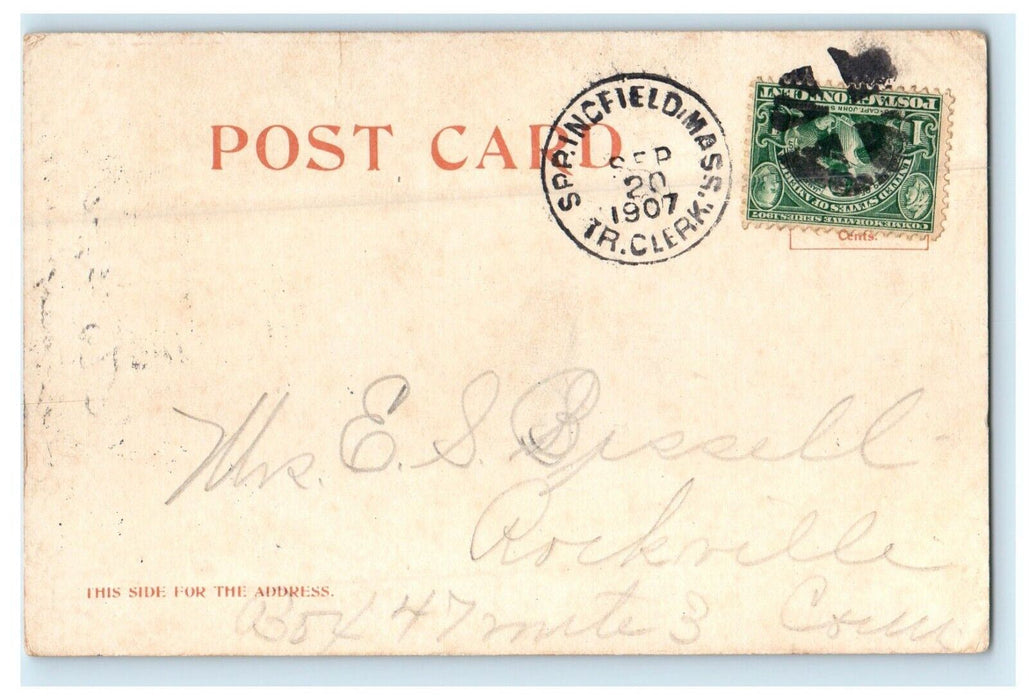 POST CARD
SPRINGFIELD, MASS.
SEP
20
1907
TR. CLERK.
COMMEMORATIVE SERIES 1907
UNITED STATES OF AMERICA
1 1
CAPT. JOHN S
POSTAGE ONE CENT
Cents.
Mrs. E. S. Bissell
Rockville
THIS SIDE FOR THE ADDRESS.
Box 47 route 3 Conn